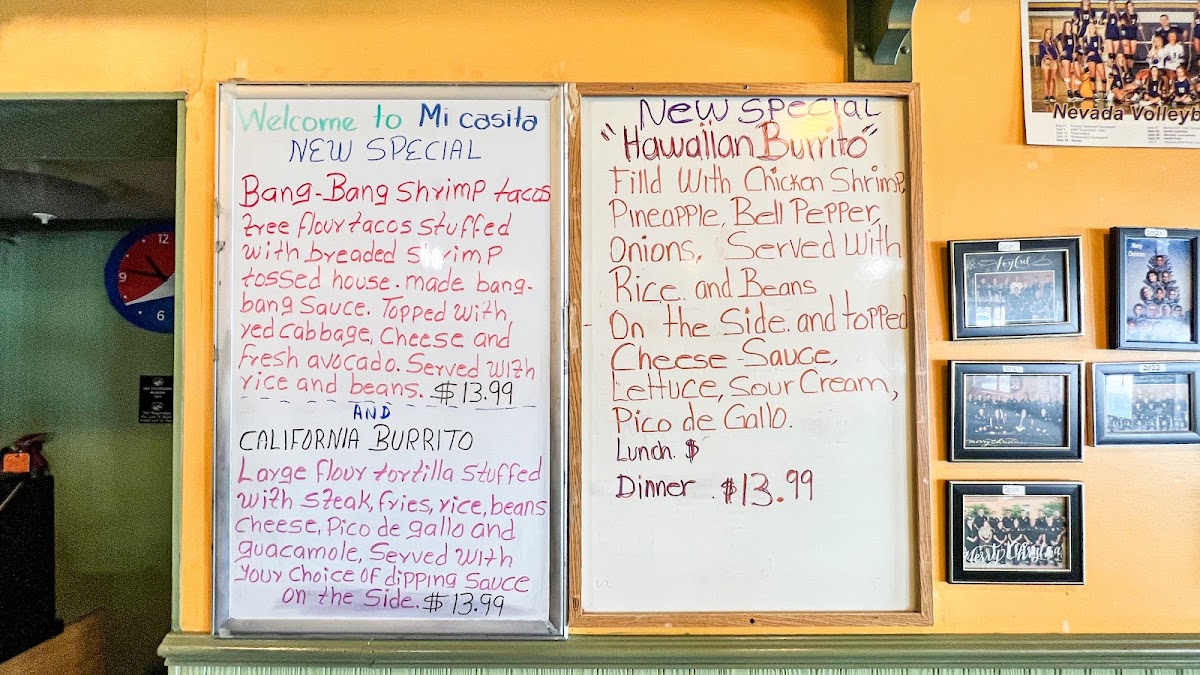 Welcome to Mi casita
NEW SPECIAL
Bang-Bang Shrimp tacos
tree flour tacos stuffed
with breaded shrimp
tossed house-made bang-
bang Sauce. Topped with
red cabbage, Cheese and
fresh avocado. Served with
rice and beans. $13.99
AND
CALIFORNIA BURRITO
Large flour tortilla stuffed
with steak, fries, rice, beans
cheese, Pico de gallo and
guacamole, Served with
your choice of dipping sauce
on the side. $13.99
NEW SPECIAL
"Hawaiian Burrito"
Filld With Chicken Shrimp,
Pineapple, Bell Pepper,
Onions, Served With
Rice and Beans
On the Side. and topped
Cheese-Sauce,
Lettuce, Sour Cream,
Pico de Gallo.
Lunch. $
Dinner $13.99
Nevada Volleyb
12
9
6
Joyful
Merry Christmas
2022